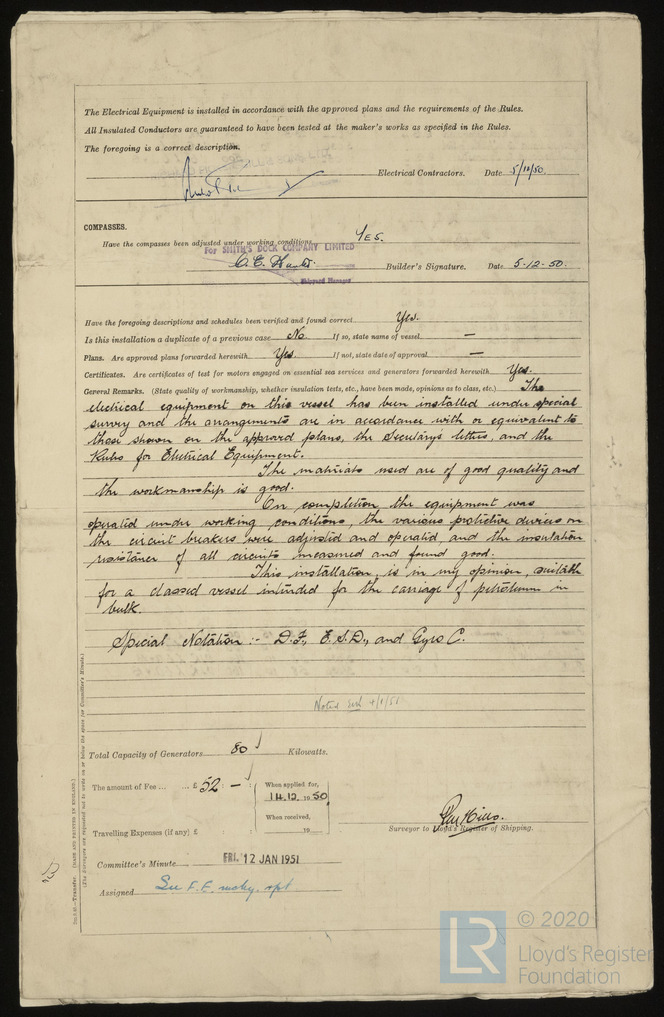 The Electrical Equipment is installed in accordance with the approved plans and the requirements of the Rules.
All Insulated Conductors are guaranteed to have been tested at the maker's works as specified in the Rules.
The foregoing is a correct description.
Electrical Contractors. Date 5/12/50.
COMPASSES.
Have the compasses been adjusted under working conditions Yes.
For SMITH'S DOCK COMPANY LIMITED
Builder's Signature. Date 5-12-50.
Shipyard Manager
Have the foregoing descriptions and schedules been verified and found correct Yes.
Is this installation a duplicate of a previous case No If so, state name of vessel —
Plans. Are approved plans forwarded herewith Yes. If not, state date of approval —
Certificates. Are certificates of test for motors engaged on essential sea services and generators forwarded herewith Yes.
General Remarks. (State quality of workmanship, whether insulation tests, etc., have been made, opinions as to class, etc.) The
electrical equipment on this vessel has been installed under special
survey and the arrangements are in accordance with or equivalent to
those shown on the approved plans, the Secretary's letters, and the
Rules for Electrical Equipment.
The materials used are of good quality and
the workmanship is good.
On completion the equipment was
operated under working conditions, the various protective devices on
the circuit breakers were adjusted and operated, and the insulation
resistance of all circuits measured and found good.
This installation, is in my opinion, suitable
for a classed vessel intended for the carriage of petroleum in
bulk.
Special Notation :- D.F., E.S.D., and Gyro C.
Noted 4/1/51
Total Capacity of Generators 80 Kilowatts.
The amount of Fee ... £ 52 : — :
When applied for,
14.12.1950.
When received,
19
Travelling Expenses (if any) £
Surveyor to Lloyd's Register of Shipping.
Committee's Minute FRI. 12 JAN 1951
Assigned See F.E. mchy. rpt.
(MADE AND PRINTED IN ENGLAND.)
(The Surveyors are requested not to write on or below the space for Committee's Minute.)
© 2020
LR
Lloyd's Register
Foundation